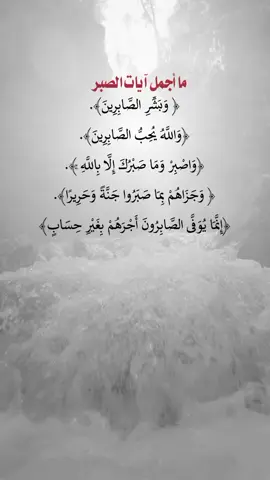 ما أجمل آيات الصبر
﴿ وَبَشِّرِ الصَّابِرِينَ﴾.
﴿وَاللَّهُ يُحِبُّ الصَّابِرِينَ﴾.
﴿وَاصْبِرْ وَمَا صَبْرُكَ إِلَّا بِاللَّهِ ﴾.
﴿ وَجَزَاهُمْ بِمَا صَبَرُوا جَنَّةً وَحَرِيرًا﴾.
﴿إِنَّمَا يُوَفَّى الصَّابِرُونَ أَجْرَهُمْ بِغَيْرِ حِسَابٍ﴾